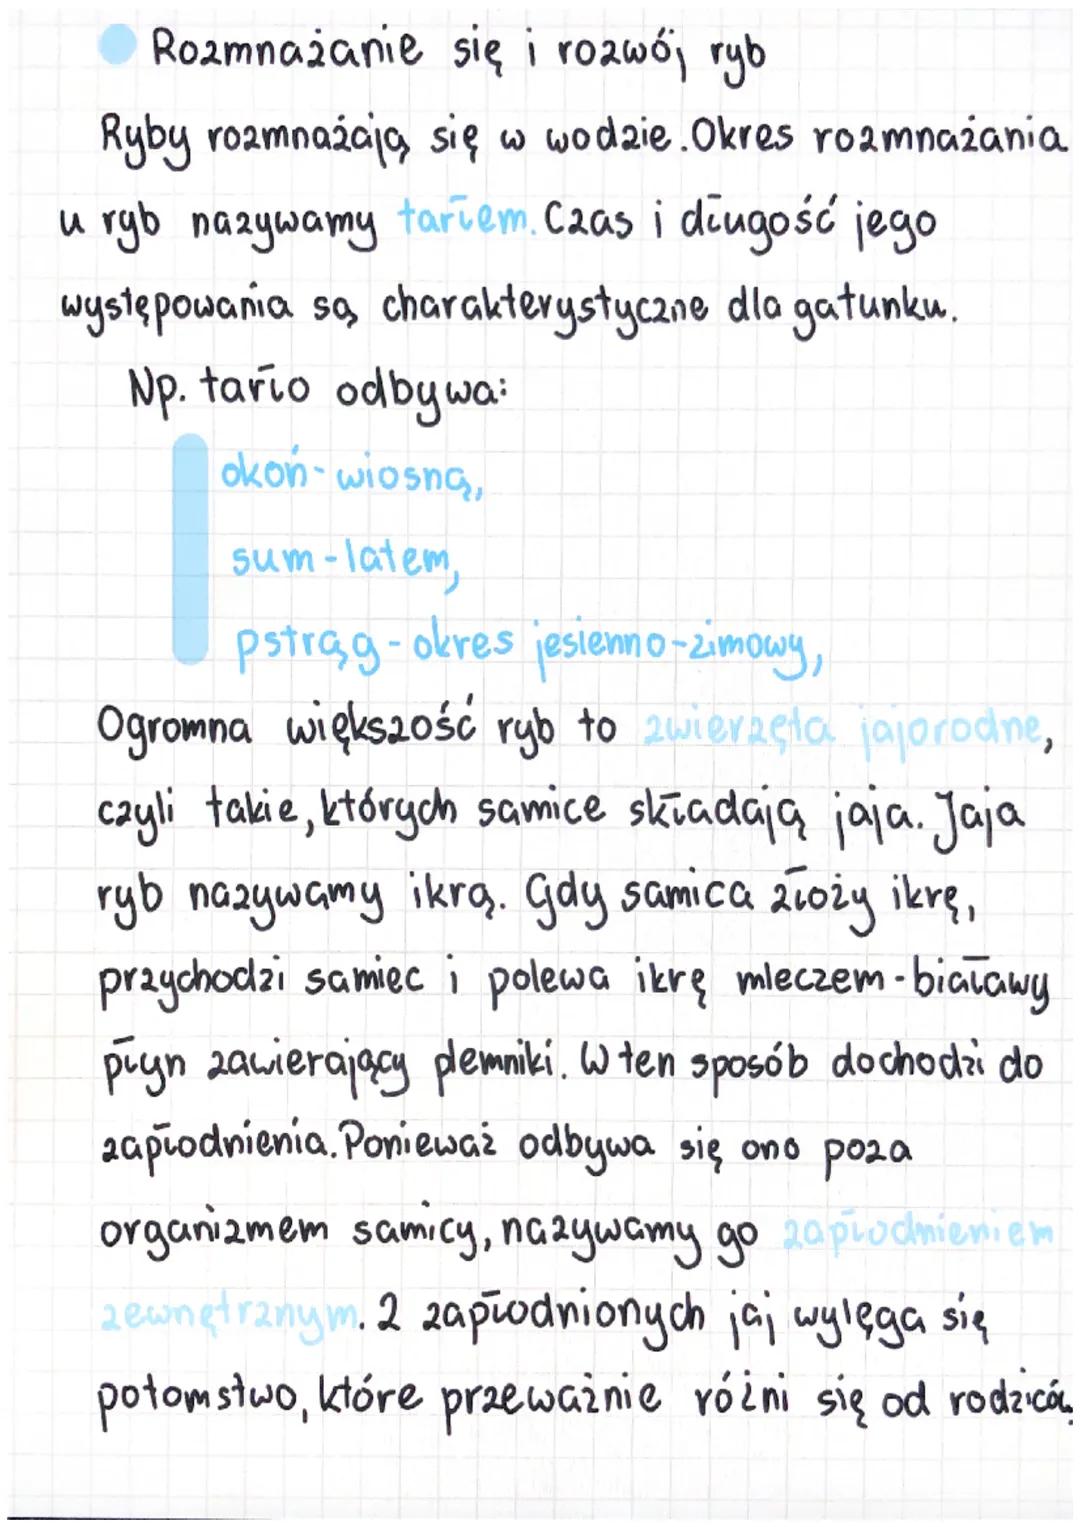 Rozmnażanie się i rozwój ryb
Ryby rozmnażają się w wodzie. Okres rozmnażania
u ryb nazywamy tarłem. Czas i długość jego
występowania są charakterystyczne dla gatunku.
Np. tarło odbywa:
okoń - wiosną,
sum - latem,
pstrąg - okres jesienno-zimowy,
Ogromna większość ryb to zwierzęta jajorodne,
czyli takie, których samice składają jaja. Jaja
ryb nazywamy ikrą. Gdy samica złoży ikrę,
przychodzi samiec i polewa ikrę mleczem - białawy
płyn zawierający plemniki. W ten sposób dochodzi do
zapłodnienia. Ponieważ odbywa się ono poza
organizmem samicy, nazywamy go zapłodnieniem
zewnętrznym. Z zapłodnionych jaj wylęga się
potomstwo, które przeważnie różni się od rodziców